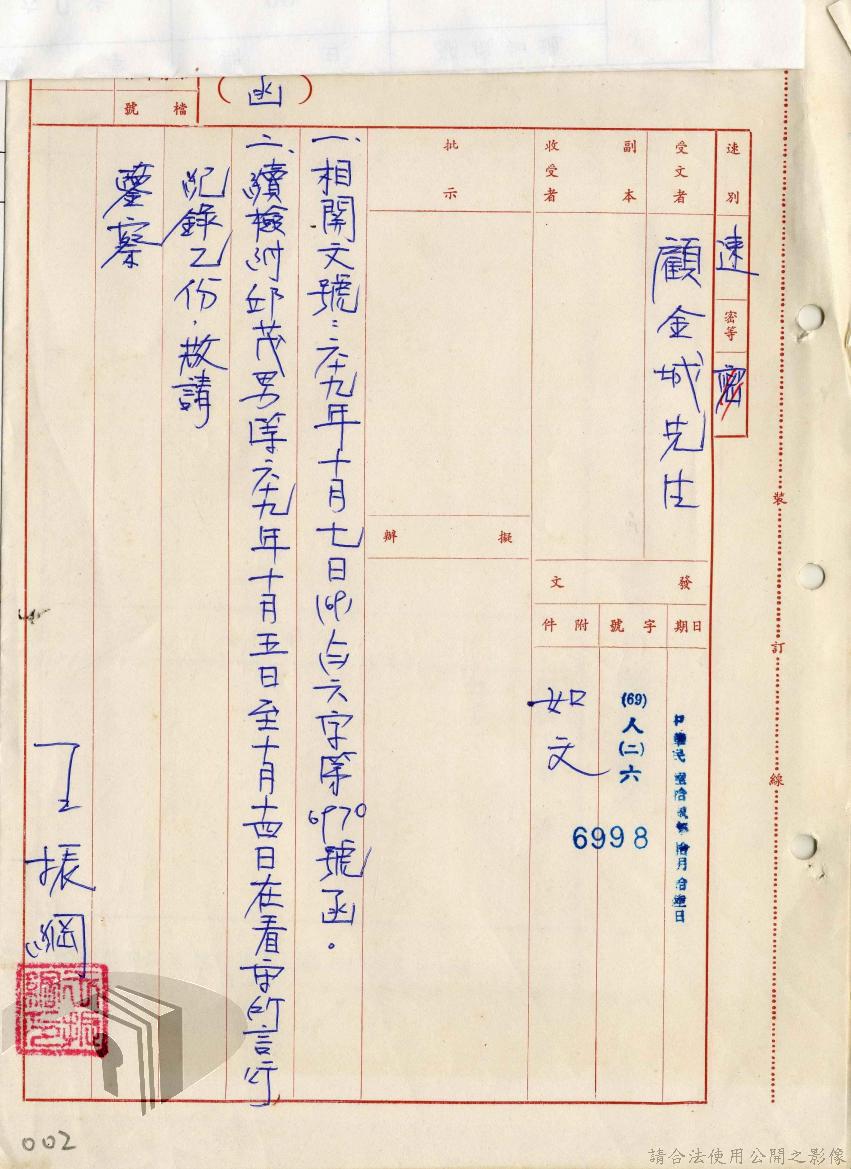 速別
速
密等
密
受文者
顧金城先生
副本
收受者
發文
日期
字號
(69)人(二)六
6998
附件
如文
批示
擬辦
(函)
檔號
一、相關文號：六十九年十月七日(69)人(二)六字第6970號函。
二、續檢附邱茂男等六十九年十月五日至十月十四日在看守所言行
紀錄乙份，敬請
鑒察
王振綱
裝
訂
線
002
請合法使用公開之影像